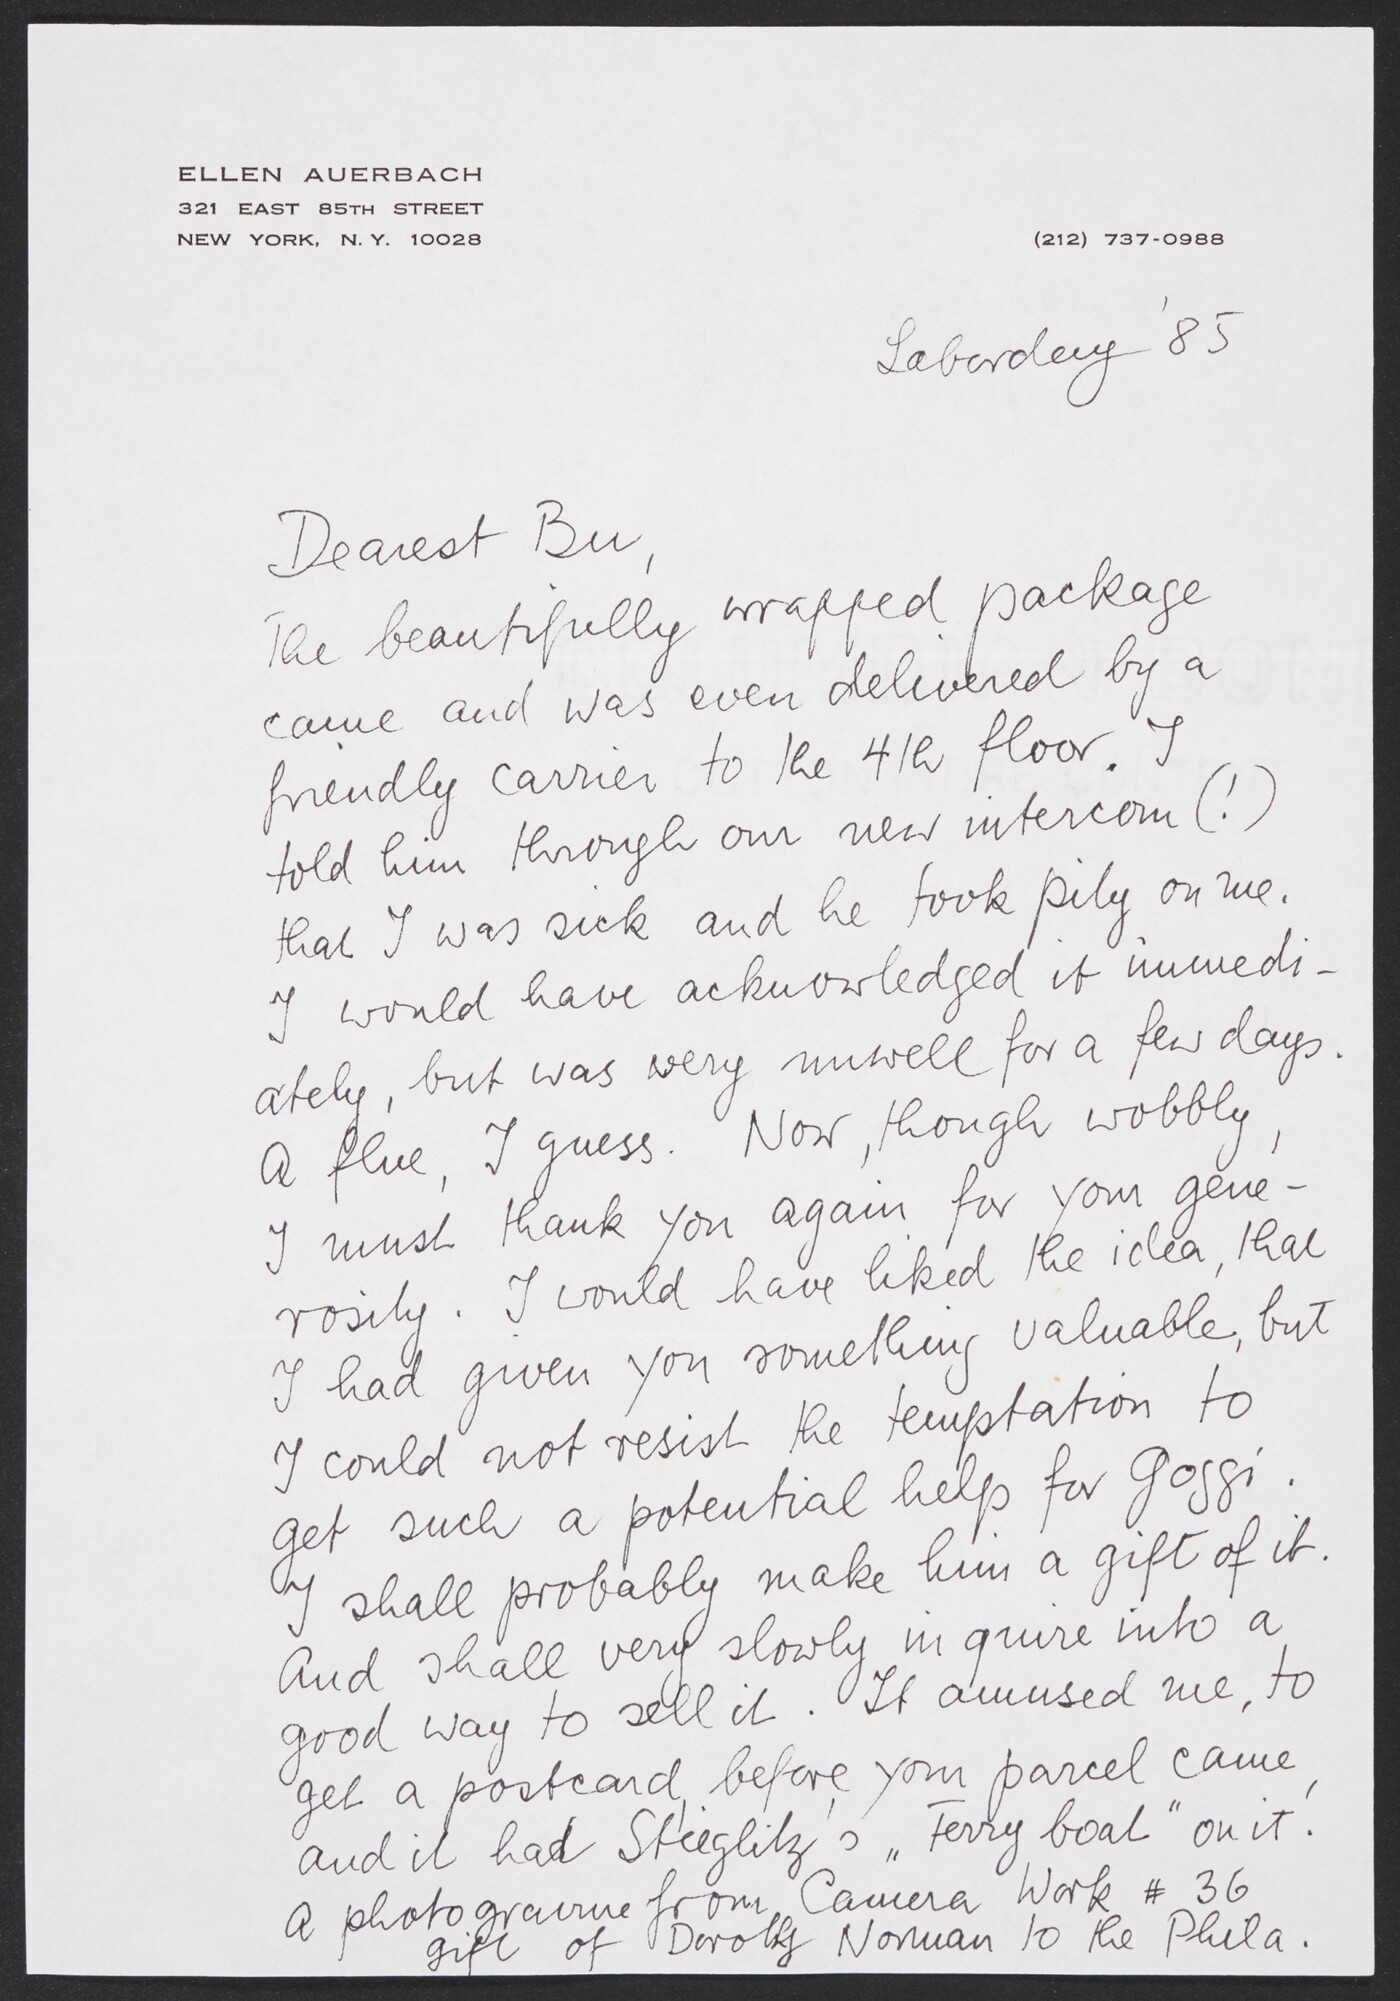 ELLEN AUERBACH
321 EAST 85TH STREET
NEW YORK, N.Y. 10028
(212) 737-0988
Laborday '85
Dearest Bu,
The beautifully wrapped package
came and was even delivered by a
friendly carrier to the 4th floor. I
told him through our new intercom (!)
that I was sick and he took pity on me.
I would have acknowledged it immedi-
ately, but was very unwell for a few days.
A flue, I guess. Now, though wobbly,
I must thank you again for your gene-
rosity. I would have liked the idea, that
I had given you something valuable, but
I could not resist the temptation to
get such a potential help for Goggi.
I shall probably make him a gift of it.
And shall very slowly inquire into a
good way to sell it. It amused me, to
get a postcard, before your parcel came,
and it had Stieglitz's „Ferry boat" on it!
A photogravure from Camera Work # 36
gift of Dorothy Norman to the Phila.